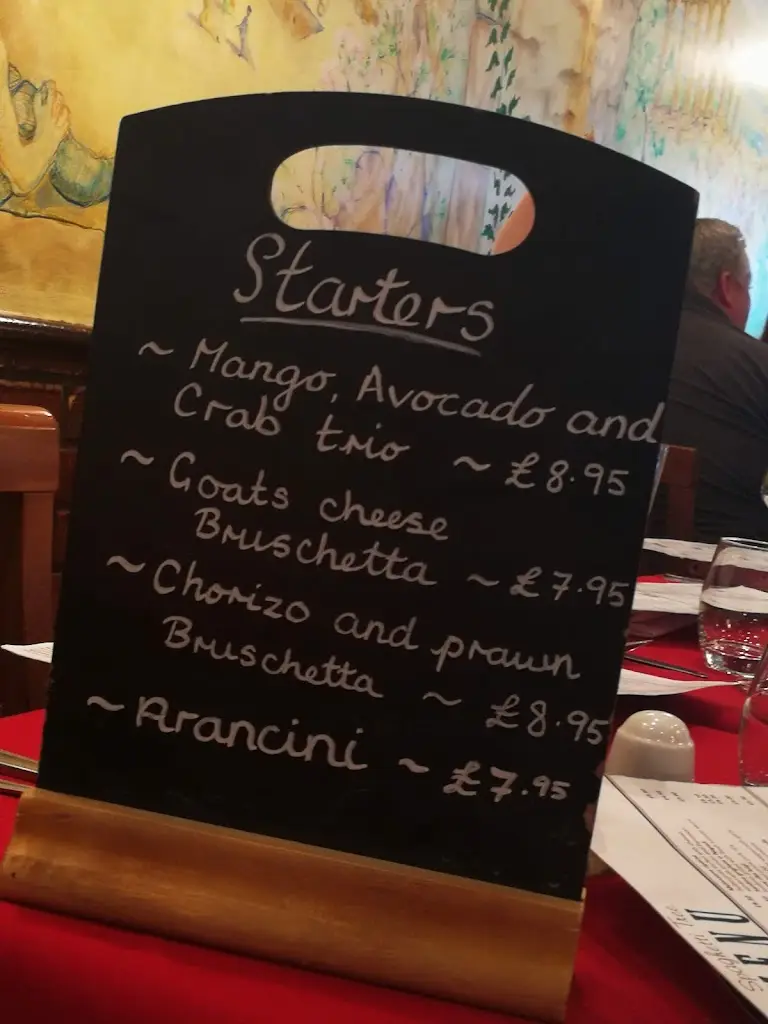 Starters
~ Mango, Avocado and
Crab trio ~ £8.95
~ Goats cheese
Bruschetta ~ £7.95
~ Chorizo and prawn
Bruschetta ~ £8.95
~ Arancini ~ £7.95